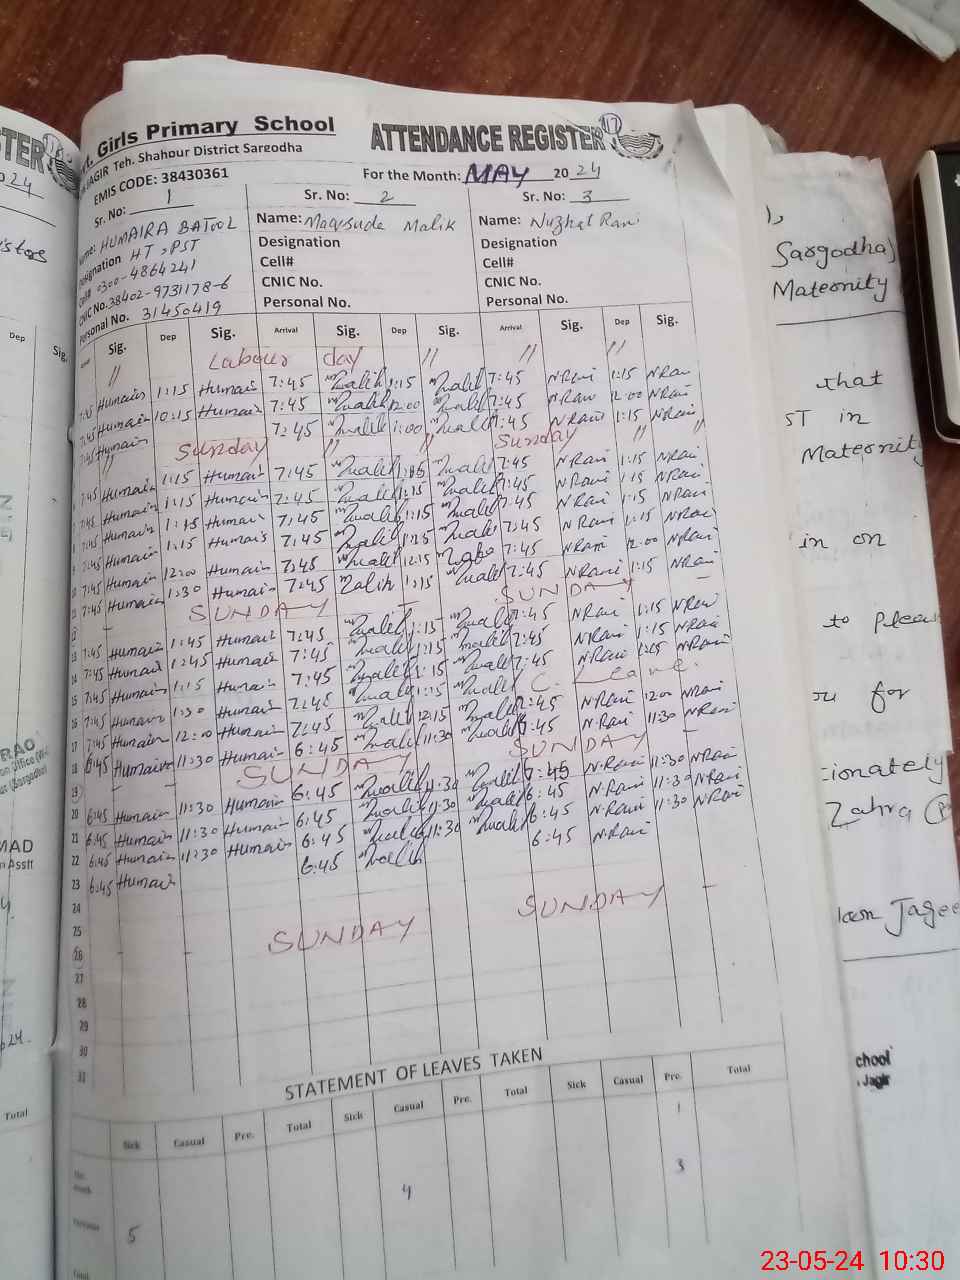 t. Girls Primary School
ATTENDANCE REGISTER
117
JAGIR Teh. Shahpur District Sargodha
EMIS CODE: 38430361
For the Month: MAY 2024
Sr. No: 1
Sr. No: 2
Sr. No: 3
Name: HUMAIRA BATOOL
Name: Maqsuda Malik
Name: Nuzhat Rani
Designation HT, PST
Designation
Designation
Cell# 0300-4864241
Cell#
Cell#
CNIC No. 38402-9731178-6
CNIC No.
CNIC No.
Personal No. 31450419
Personal No.
Personal No.
Sig. Dep Sig. Arrival Sig. Dep Sig. Arrival Sig. Dep Sig.
// Labour day // // //
7:45 Humaira 1:15 Humair 7:45 Malik 1:15 Malik 7:45 NRani 1:15 NRani
7:45 Humair 10:15 Humair 7:45 Malik 12:00 Malik 7:45 NRani 12:00 NRani
7:45 Humair 7:45 Malik 1:00 Malik 7:45 NRani 1:15 NRani
// Sunday // // Sunday // //
7:45 Humair 1:15 Humair 7:45 Malik Malik 7:45 NRani 1:15 NRani
7:45 Humair 1:15 Humair 7:45 Malik 1:15 Malik 7:45 NRani 1:15 NRani
7:45 Humair 1:15 Humair 7:45 Malik 1:15 Malik 7:45 NRani 1:15 NRani
7:45 Humair 1:15 Humair 7:45 Malik Malik 7:45 NRani 1:15 NRani
10 7:45 Humair 12:00 Humair 7:45 Malik 12:15 7:45 NRani 12:00 NRani
11 7:45 Humair 1:30 Humair 7:45 Malik 1:15 Malik 7:45 NRani 1:15 NRani
12 - SUNDAY - SUNDAY -
13 7:45 Humair 1:45 Humair 7:45 Malik 1:15 Malik 7:45 NRani 1:15 NRani
14 7:45 Humair 1:45 Humair 7:45 Malik 1:15 Malik 7:45 NRani 1:15 NRani
15 7:45 Humair 1:15 Humair 7:45 Malik 1:15 Malik 7:45 NRani NRani
16 7:45 Humair 1:30 Humair 7:45 Malik 1:15 Malik C. Leave.
17 7:45 Humair 12:00 Humair 7:45 Malik 12:15 Malik 7:45 NRani 12:00 NRani
18 6:45 Humair 11:30 Humair 6:45 Malik 11:30 Malik 6:45 NRani 11:30 NRani
19 - - SUNDAY SUNDAY
20 6:45 Humair 11:30 Humair 6:45 Malik 11:30 Malik NRani 11:30 NRani
21 6:45 Humair 11:30 Humair 6:45 Malik 11:30 Malik 6:45 NRani 11:30 NRani
22 6:45 Humair 11:30 Humair 6:45 Malik 11:30 Malik 6:45 NRani 11:30 NRani
23 6:45 Humair 6:45 Malik 6:45 NRani
24
25
26 - - SUNDAY SUNDAY -
27
28
29
30
31
STATEMENT OF LEAVES TAKEN
Sick Casual Pre. Total Sick Casual Pre. Total Sick Casual Pre. Total
1
4 3
5
TER
Dep Sig.
Total
Sargodha)
Maternity
that
ST in
Maternity
in on
to pleas
for
ionately
Zahra
Jagee
chool
Jagir
RAO
MAD
n Asstt
23-05-24 10:30